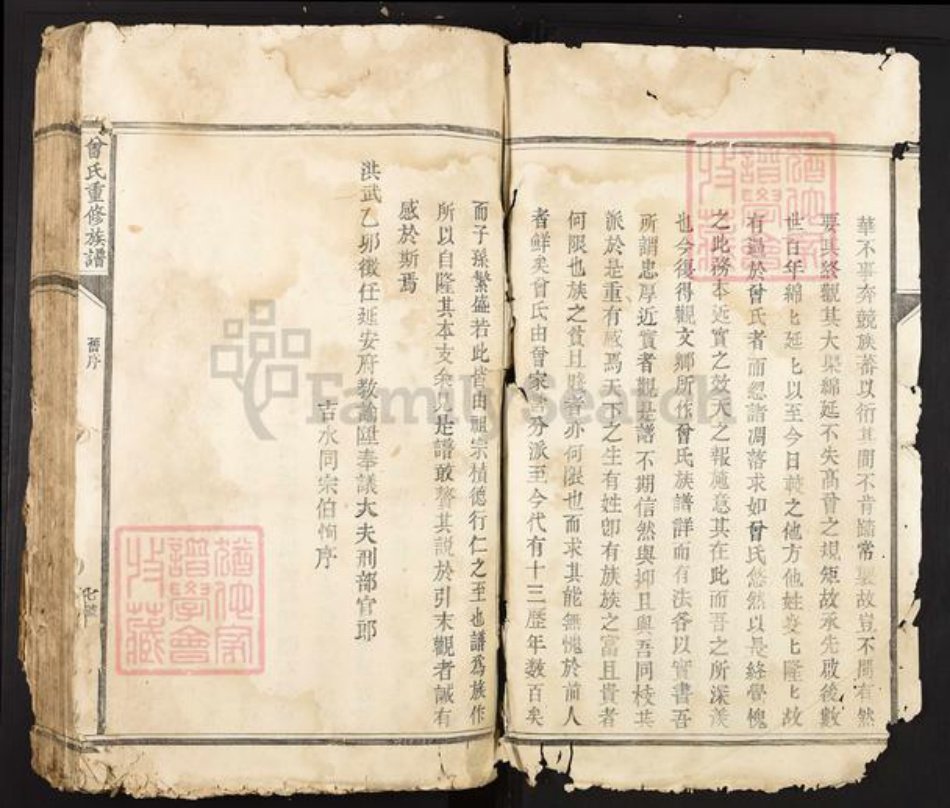 華不事奔競族蕃以衍其間不肯踰常襲故豈不間有然
要其終觀其大槩綿延不失高曾之規矩故承先啟後數
世百年綿〻延〻以至今日較之他方他姓隆〻故
有過於曾氏者而忽諸凋落求如曾氏悠然以長終覺愧
之此務本近實之效天之報施意其在此而吾之所深羨
也今復得觀文鄉所作曾氏族譜詳而有法各以實書吾
所謂忠厚近質者觀是譜不期信然與抑且與吾同枝共
派於是重有感焉天下之生有姓卽有族族之富且貴者
何限也族之貧且賤者亦何限也而求其能無愧於前人
者鮮矣曾氏由曾家分派至今代有十三歷年數百矣
而子孫繁盛若此皆由祖宗積德行仁之至也譜為族作
所以自隆其本支余見是譜敢贅其說於引末觀者誠有
感於斯焉
洪武乙卯徵任延安府教諭陞奉議大夫刑部官郎
吉水同宗伯恂序
曾氏重修族譜
舊序
FamilySearch
譜學會
收藏